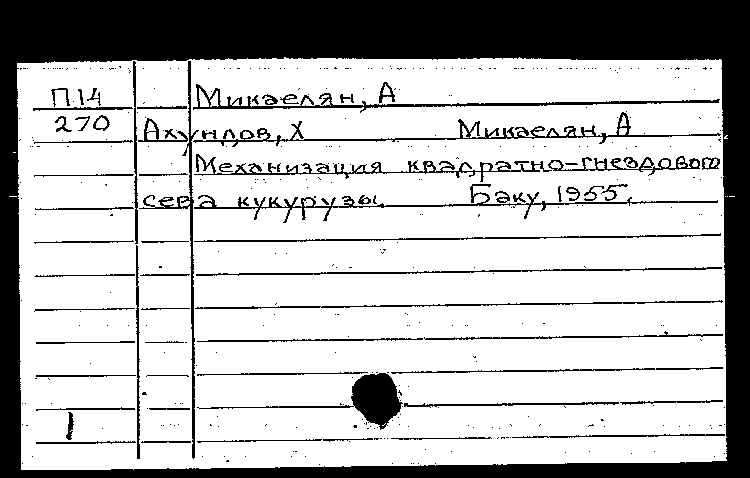 П.14 Микаелян, А
270 Ахундов, Х Микаелян, А
Механизация квадратно-гнездового
сева кукурузы. Баку, 1955.
1